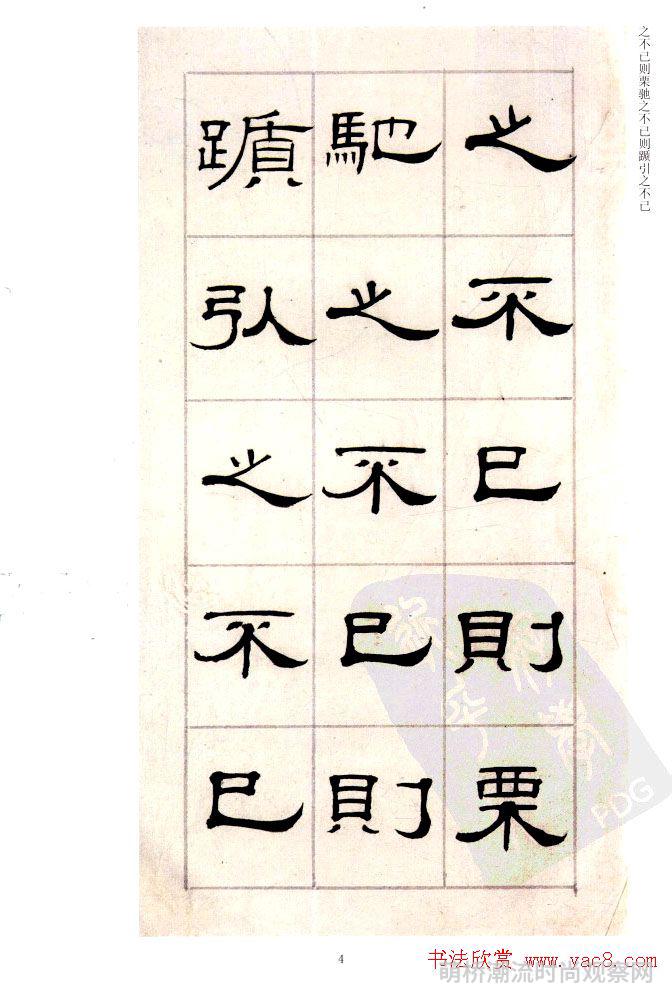 之不已则栗驰之不已则躓引之不已
之不已則栗
馳之不已則
躓引之不已
FDG
4
书法欣赏 www.yac8.com
萌桥潮流时尚观察网